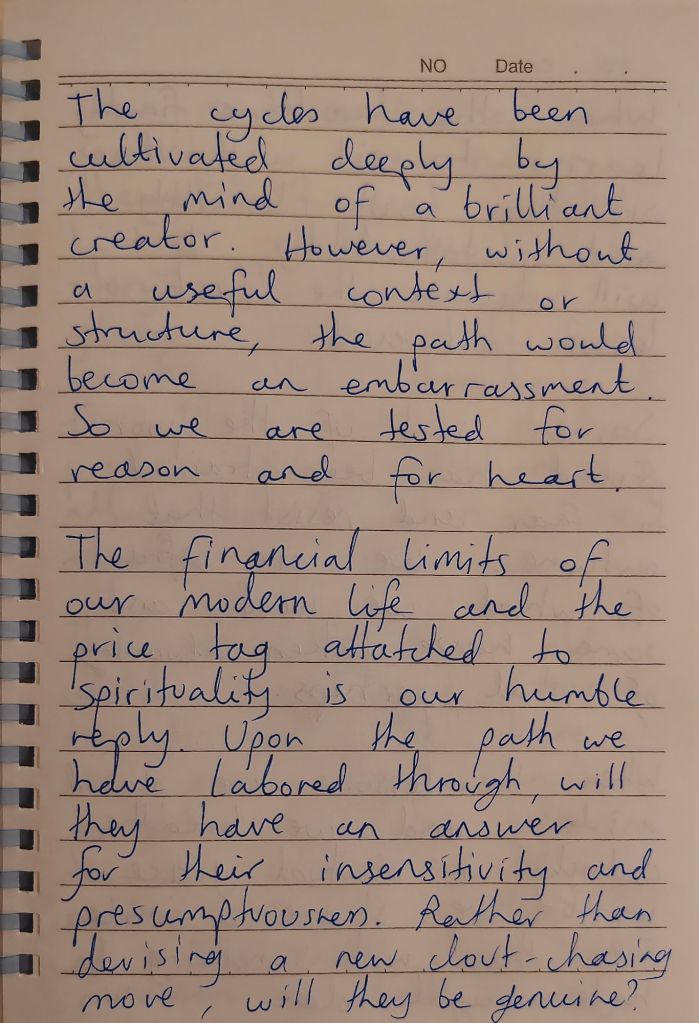 NO Date . .
The cycles have been
cultivated deeply by
the mind of a brilliant
creator. However, without
a useful context or
structure, the path would
become an embarrassment.
So we are tested for
reason and for heart.
The financial limits of
our modern life and the
price tag attatched to
spirituality is our humble
reply. Upon the path we
have labored through, will
they have an answer
for their insensitivity and
presumptuousness. Rather than
devising a new clout-chasing
move, will they be genuine?